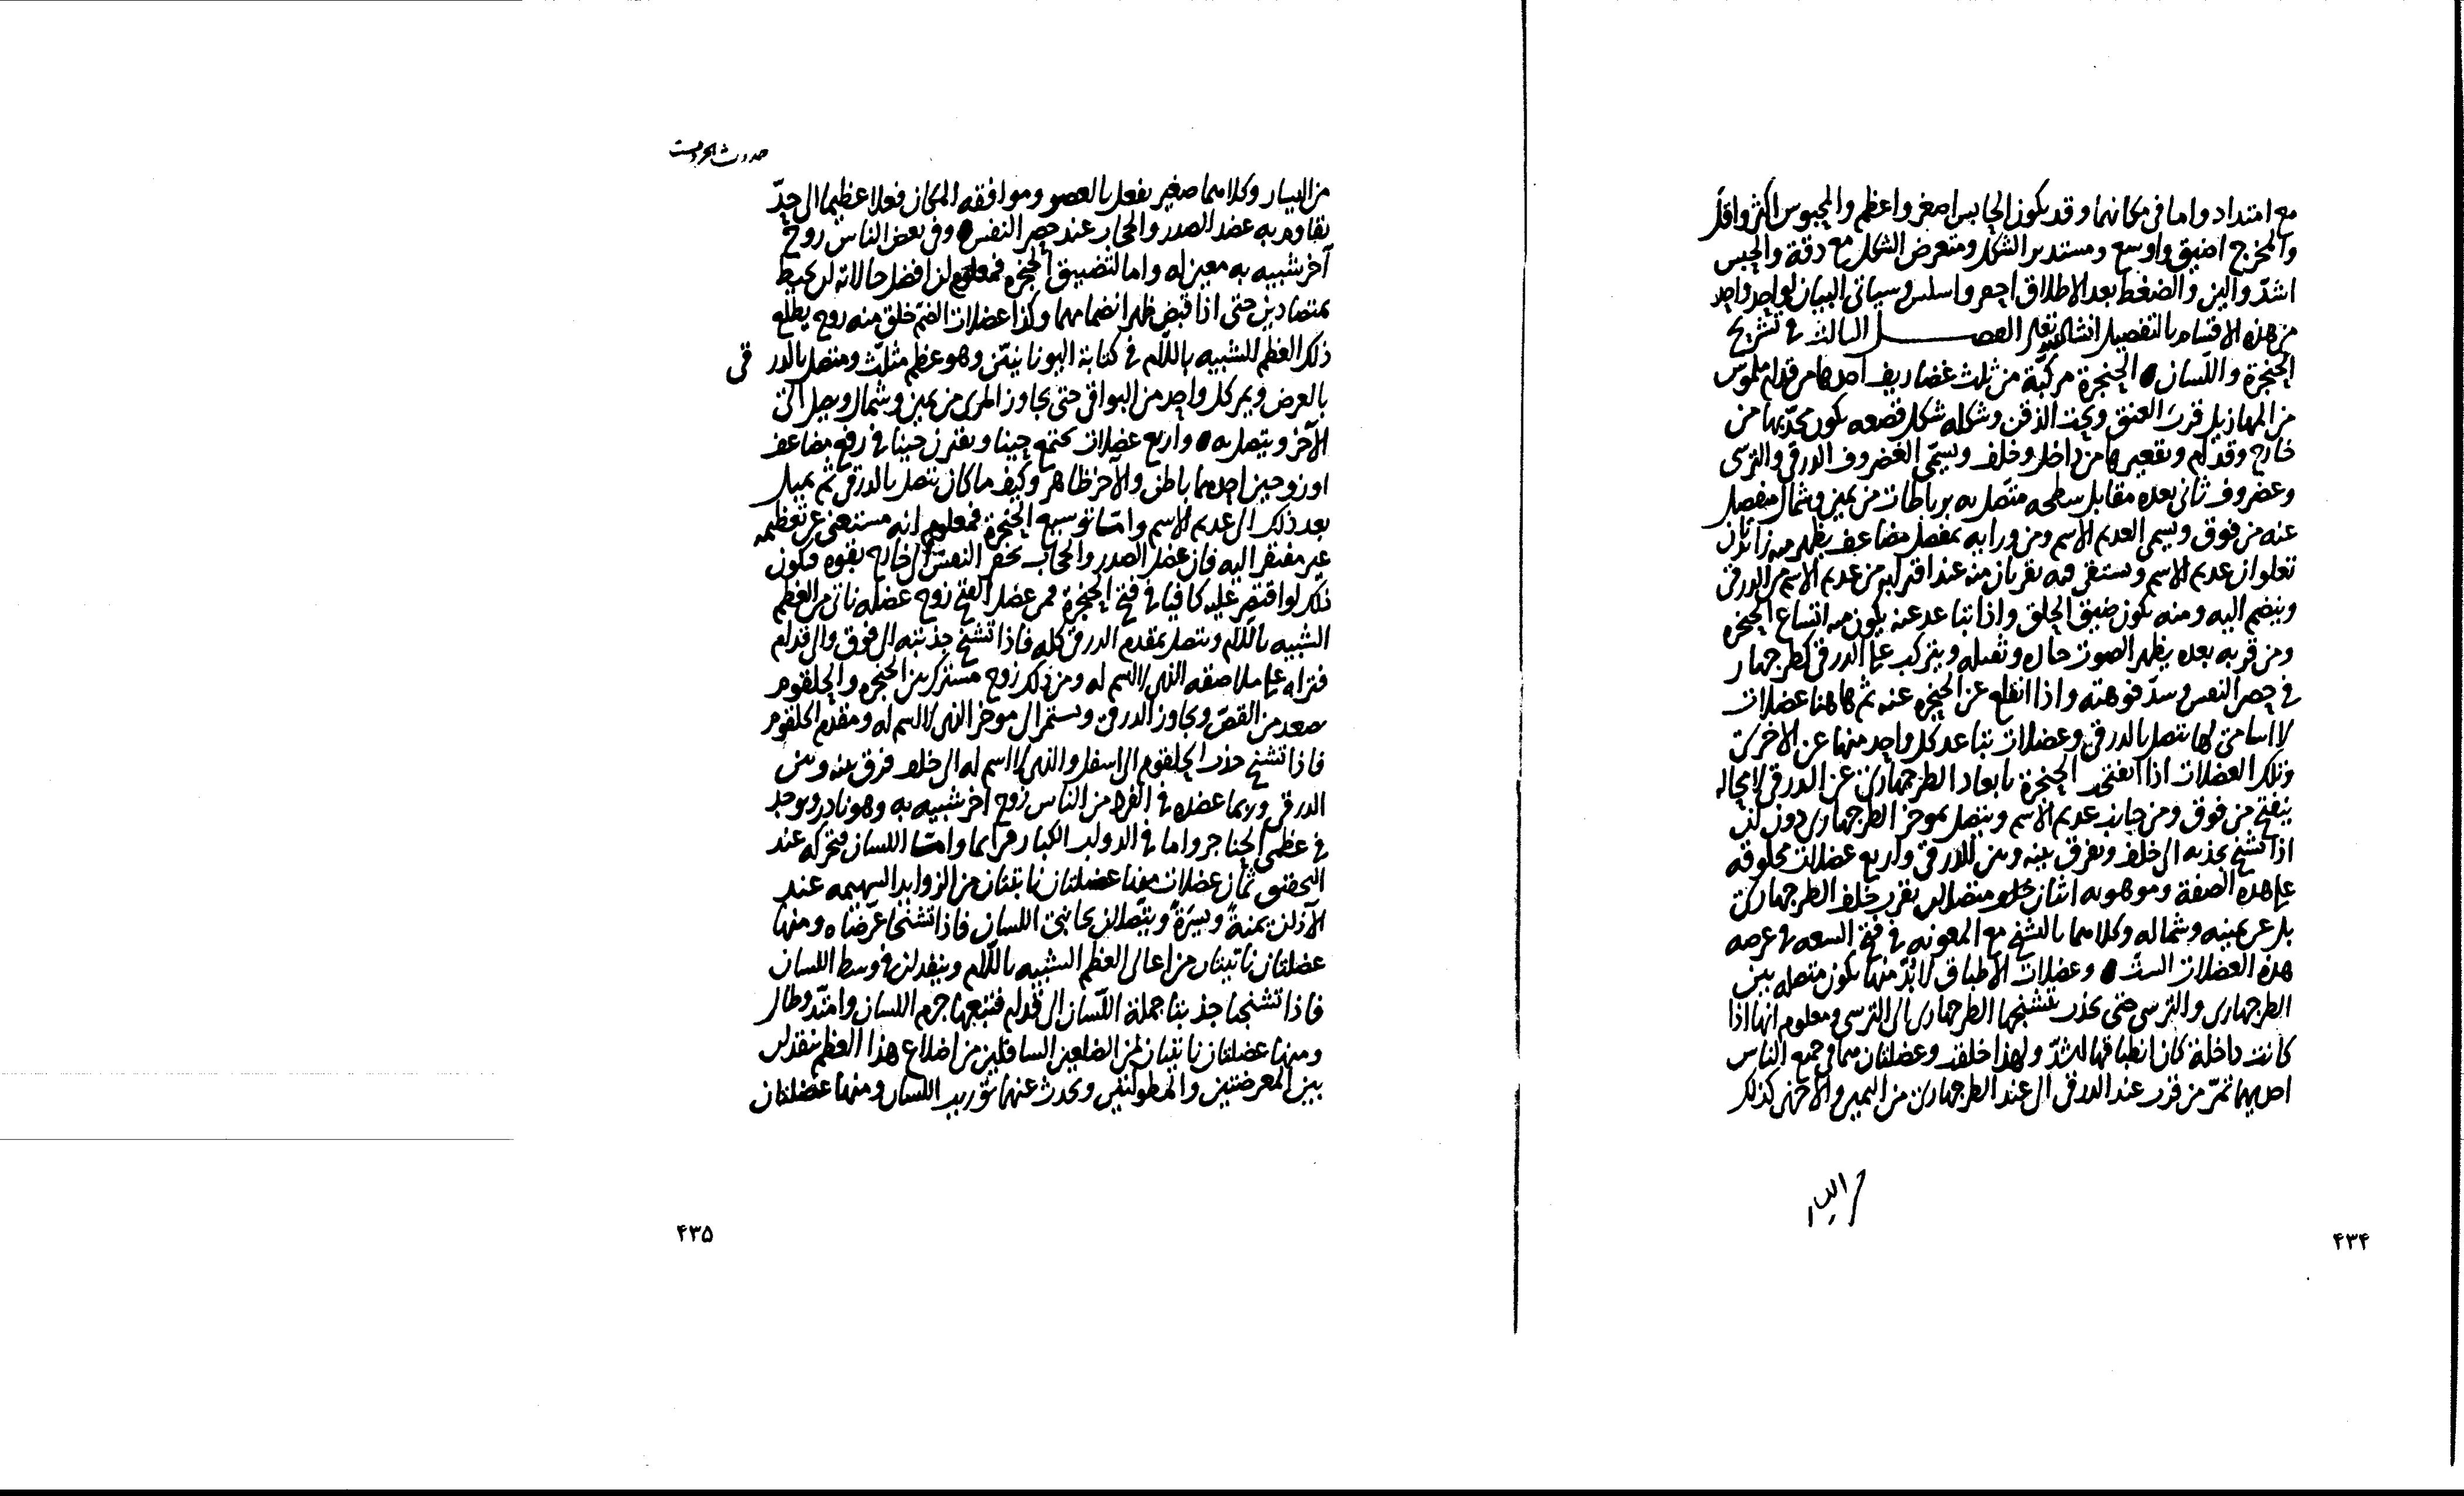 مع امتداد واما فى مكانهما وقد يكون الحابس اصغر واعظم والمحبوس اكثر واقل
والمخرج اضيق واوسع ومستدير الشكل ومتعرض الشكل مع دقة والحبس
اشدّ والين والضغط بعد الاطلاق احفر واسلس وسياتى البيان لواحد واحد
من هذه الاقسام بالتفصيل انشا الله تعالى الفصل الثالث فى تشريح
الحنجرة واللسان الحنجرة مركبة من ثلث غضاريف احدها من قدام ملموس
من المهازيل قرب العنق وتحت الذقن وشكله شكل قصعه يكون محدبها من
خارج وقدام وتقعيرها من داخل وخلف ويسمى الغضروف الدرقى والترسى
وغضروف ثانى بعده مقابل سطحه متصل به برباطات من يمين وشمال منفصل
عنه من فوق ويسمى العديم الاسم ومن ورايه بمفصل مضاعف يظهر من زائدتان
تعلوان عديم الاسم وتستقر فيه نقرتان منه عند اقترابه من عديم الاسم من الدرقى
وينضم اليه ومنه يكون ضيق الحلق واذا تباعد عنه يكون منه اتساع الحنجره
ومن قربه بعده يظهر الصوت حاده وثقيله ويتركب على الدرقى كطرجهار
فى حصر النفس وسدّ فوهته واذا انقلع عن الحنجره عنه ثم هاهنا عضلات
لا اسامى لها تتصل بالدرقى وعضلات تباعد كل واحد منها عن الاخر حتى
وتلك العضلات اذا انفتحت الحنجرة بابعاد الطرجهارى عن الدرقى لا محاله
ينفتح من فوق ومن جانب عديم الاسم ويتصل بموخر الطرجهارى دون ان
اذا تشنج يجذبه الى خلف وتفرق بينه وبين الدرقى واربع عضلات مخلوقه
على هذه الصفة وموهوبه اثنان منفصلان بقرب خلف الطرجهارى
بل عن يمينه وشماله وكلاهما بالتشنج مع المعونه فى فتح السعه فى عرضه
هذه العضلات الستّ وعضلات الاطباق لا بدّ منها يكون متصله بين
الطرجهارى والترسى حتى يجذب تشنجها الطرجهارى الى الترسى ومعلوم انها اذا
كانت داخلة كان انطباقها اشدّ ولهذا خلقت وعضلتان هما فى جميع الناس
احديهما تمرّ من قرب عند الدرقى الى عند الطرجهارى من اليمين والاخرى كذلك
من اليسار
۴۳۴
حدوث الحروفست
من اليسار وكلاهما صغير يفعل بالعصر وموافقه المكان فعلا عظيما الى حدّ
يقاوم به عضل الصدر والحجاب عند حصر النفس وفى بعض الناس زوج
آخر شبيه به معين له واما لتضييق الحنجره فمعلوم ان افضل حالاته ان يحيط
بمتضادين حتى اذا قبض ظهر انضمامهما وكذا عضلات الضم خلق منه زوج يطلع
ذلك العظم الشبيه باللّام فى كتابة اليونانيّين وهو عظم مثلّث ومتصل بالدرقى
بالعرض ويمر كل واحد من البواقى حتى يجاوز المرى من يمين وشمال ويصل الى
الآخر ويتصل به واربع عضلات تجتمع حينا وتفترق حينا فى زوج مضاعف
او زوجين احدهما باطن والآخر ظاهر وكيف ما كان تتصل بالدرقى ثم يميل
بعد ذلك الى عديم الاسم وامّا توسيع الحنجرة فمعلوم انه مستغنى عن تعظيمه
غير مفتقر اليه فان عضل الصدر والحجاب يحفز النفس الى خارج بقوه فيكون
ذلك لو اقتصر عليه كافيا فى فتح الحنجرة فمن عضل الفتح زوج عضله تاتى من العظم
الشبيه باللّام ويتصل بمقدم الدرقى كله فاذا تشنج جذبته الى فوق والى قدام
فتراه على ملاصقه الذى لا اسم له ومن ذلك زوج مشترك بين الحنجره والحلقوم
صعد من القص ويجاوز الدرقى ويستمر الى موخر الذى لا اسم له ومقدم الحلقوم
فاذا تشنج جذب الحلقوم الى اسفل والذى لا اسم له الى خلف فرق بينه وبين
الدرقى وربما عضده فى الفرط من الناس زوج اخر شبيه به وهو نادر ويوجد
فى عظمى الحناجر واما فى الدواب الكبار فدايما وامّا اللسان فتحركه عند
التحقيق ثمان عضلات منها عضلتان ناتيتان من الزوايد السهميه عند
الآذان يمنةً ويسرَةً ويتّصلان بجانبى اللسان فاذا تشنجا عرّضتاه ومنها
عضلتان ناتيتان من اعالى العظم الشبيه باللّام وينفدان فى وسط اللسان
فاذا تشنجا جذبتا جملة اللّسان الى قدام فتبعها جرم اللسان وامتدّ وطال
ومنها عضلتان ناتيتان من الضلعين السافلين من اضلاع هذا العظم ينفذان
بين المعرضتين والمطولتين ويحدث عنهما توريب اللسان ومنها عضلتان
۴۳۵